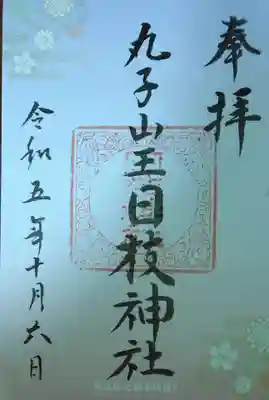 奉拝
丸子山王日枝神社
令和五年十月六日